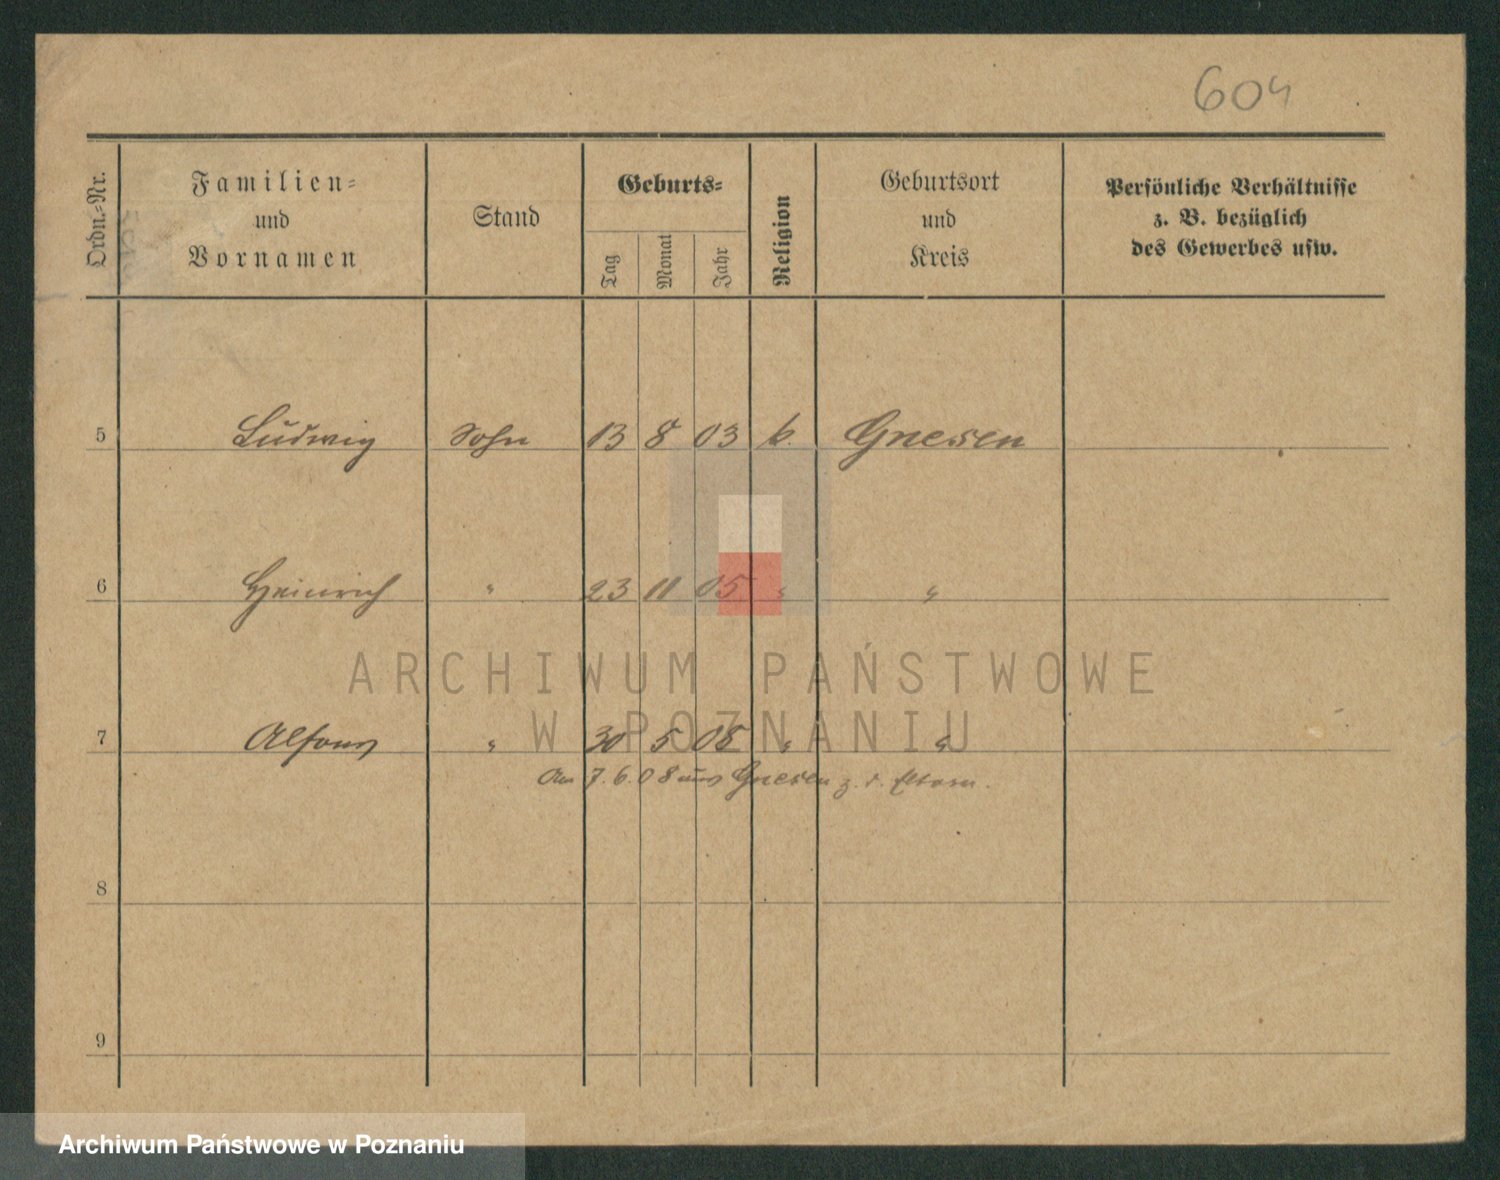 604
Ordn.-Nr.
Familien-
und
Vornamen
Stand
Geburts-
Tag
Monat
Jahr
Religion
Geburtsort
und
Kreis
Persönliche Verhältnisse
z. B. bezüglich
des Gewerbes usw.
5 Ludwig Sohn 13 8 03 k. Gnesen
6 Heinrich " 23 11 05 " "
ARCHIWUM PAŃSTWOWE
W POZNANIU
7 Alfons " 30 5 08 " "
Am 7.6.08 aus Gnesen z. d. Eltern.
8
9
Archiwum Państwowe w Poznaniu